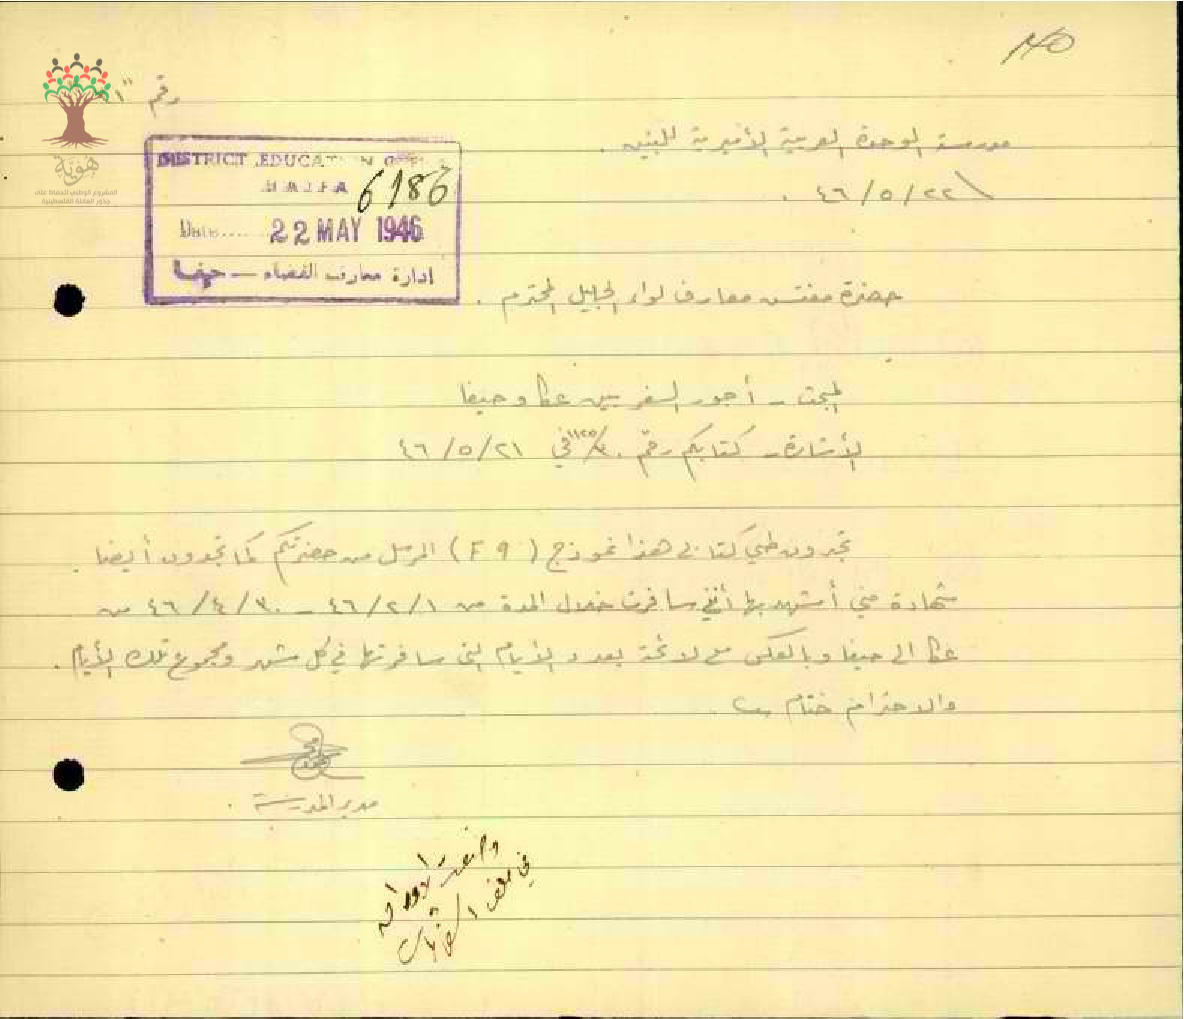 ١٣٥
رقم "١"
هوية
المشروع الوطني للحفاظ على
جذور العائلة الفلسطينية
DISTRICT EDUCATION OFFICE
HAIFA
6186
Date..... 22 MAY 1946
ادارة معارف القضاء — حيفا
مدرسة الوحدة العربية الأميرية للبنين .
٤٦/٥/٢٢ .
حضرة مفتش معارف لواء الجليل المحترم .
المبحث - أجور السفر بين عكا وحيفا
الأشارة - كتابكم رقم في ٤٦/٥/٢١
تجدون طي كتابي هذا نموذج ( F 9 ) المرسل من حضرتكم كما تجدون أيضا
شهادة مني أشهد بها أنني سافرت خلال المدة من ٤٦/٢/١ - ٤٦/٤/٣٠ من
عكا الى حيفا وبالعكس مع لائحة بعدد الأيام التي سافرتها في كل شهر ومجموع تلك الأيام .
والاحترام ختام
مدير المدرسة .
وضعت الاوراق
في ملف